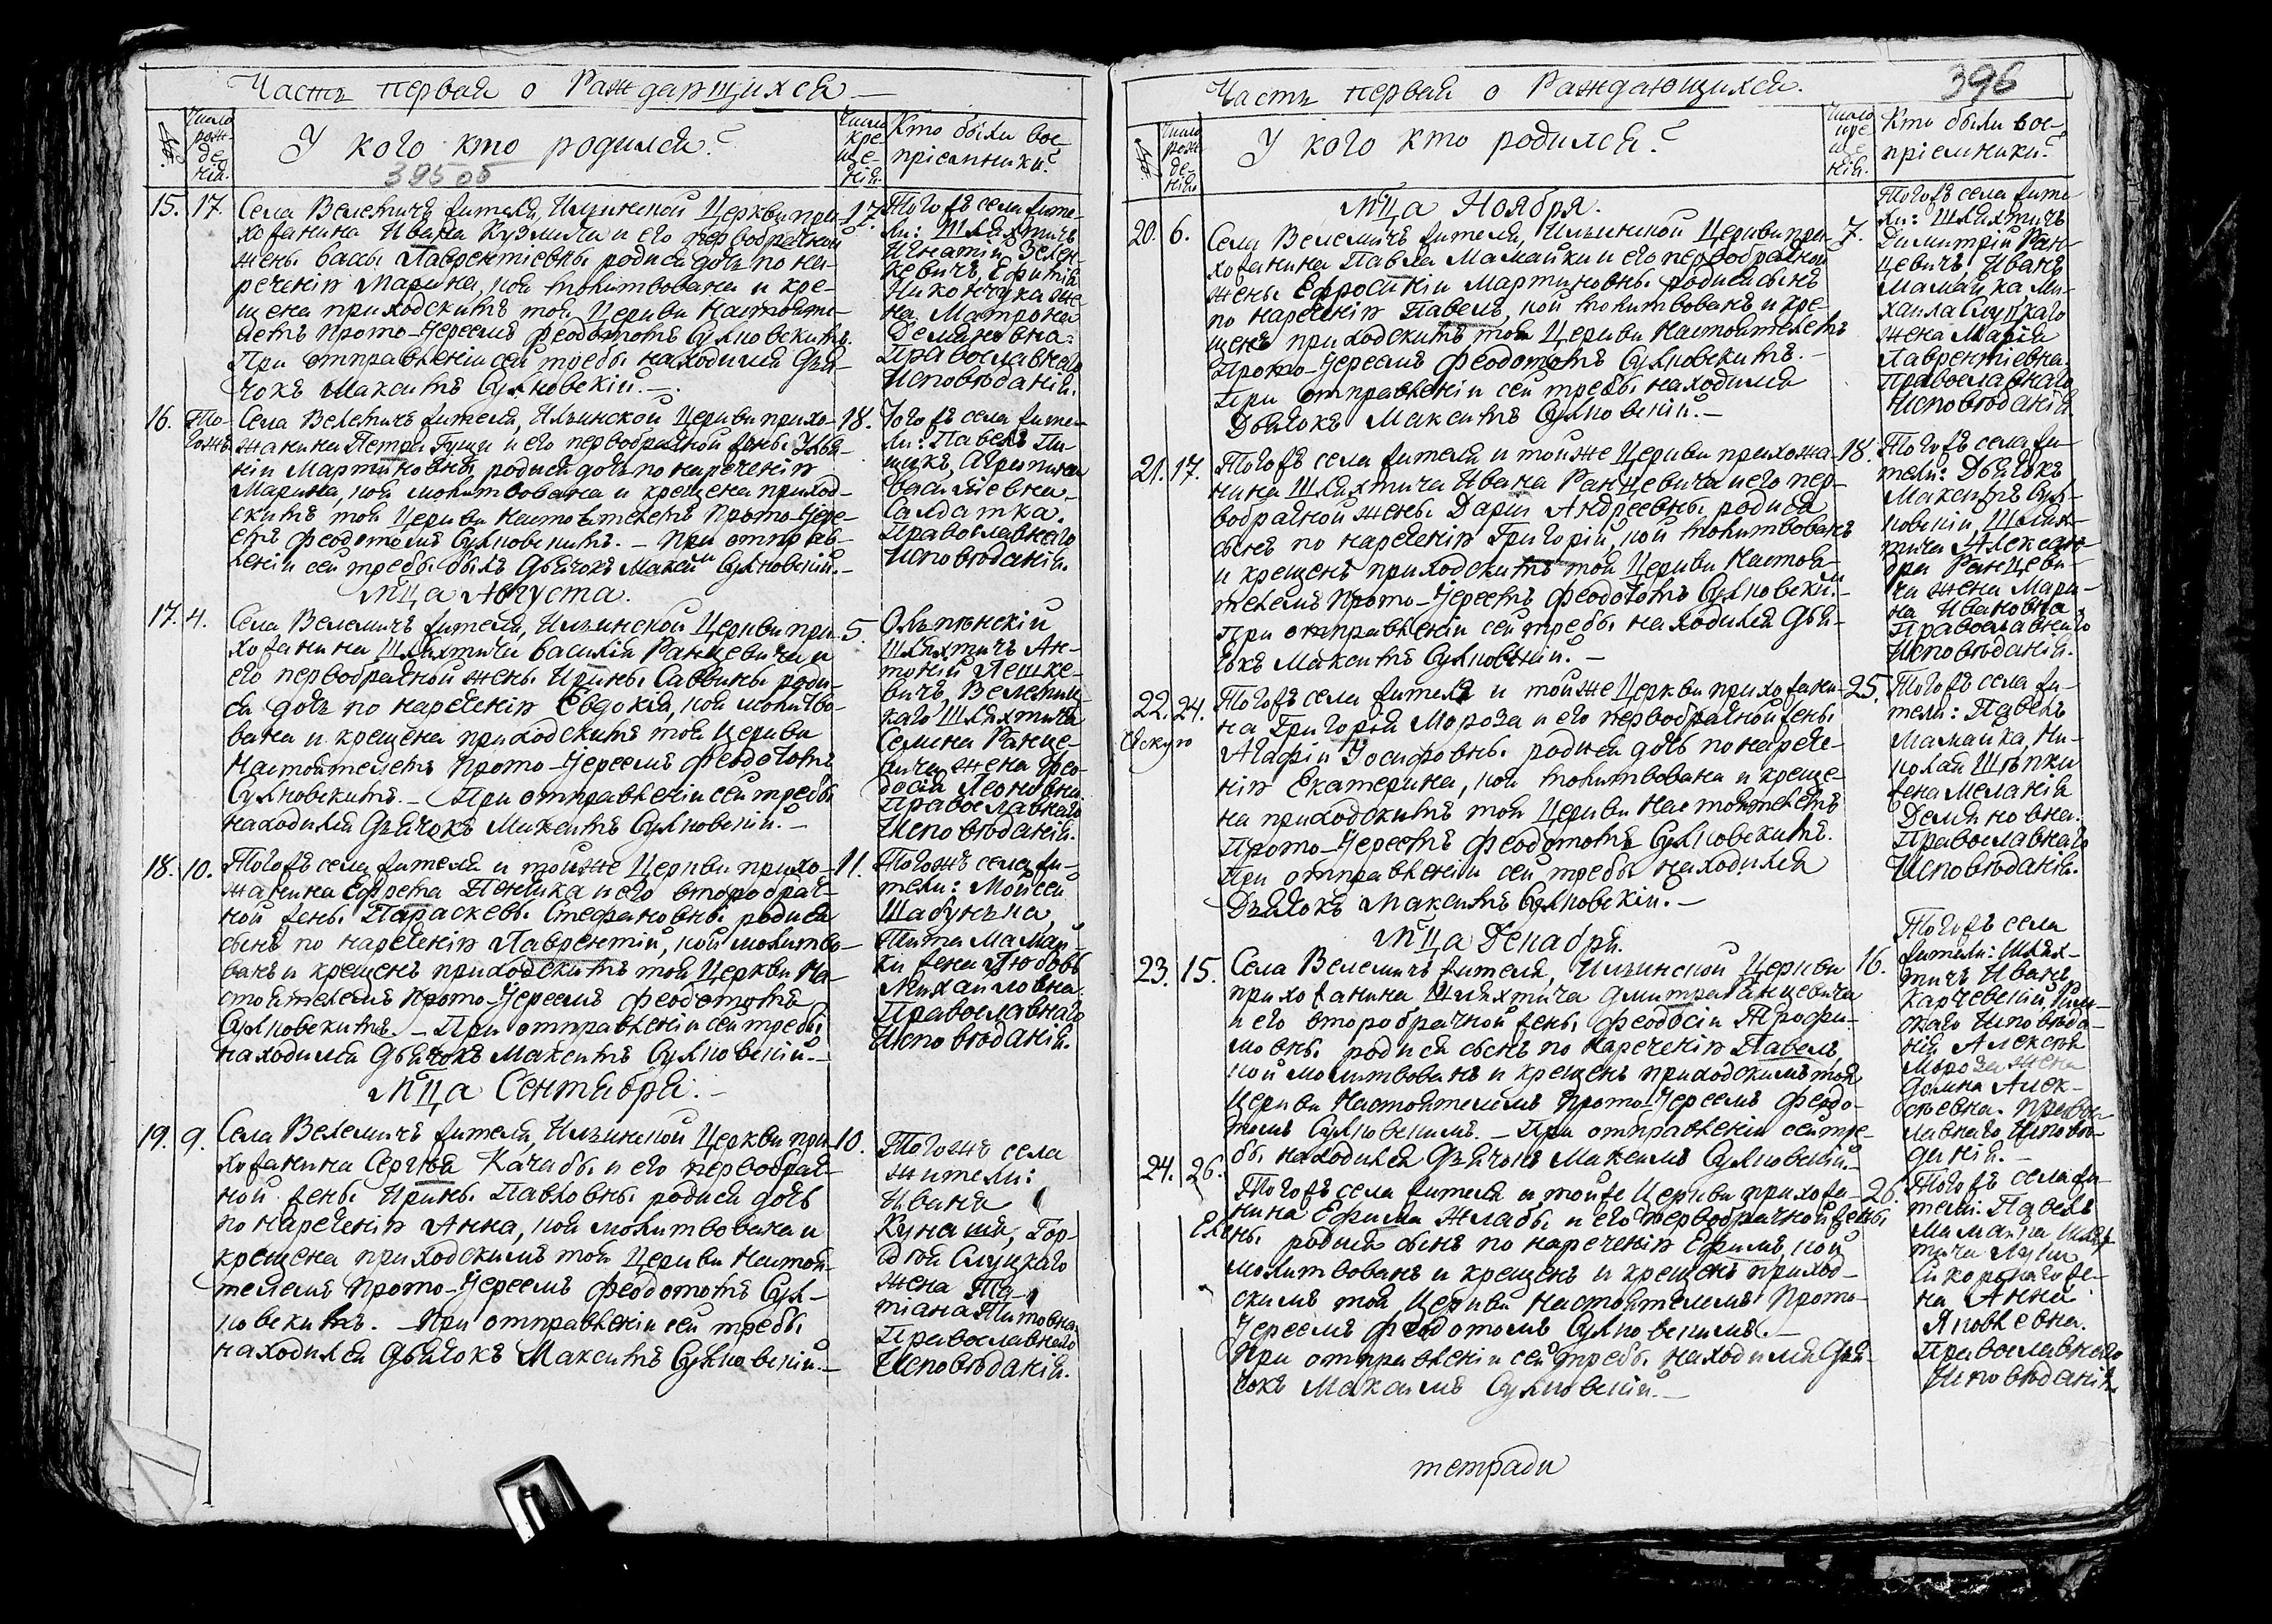 Часть первая о Раждающихся
№
Число рож-де-нія.
У кого кто родился?
395 об
Число кре-ще-нія.
Кто были вос-
пріемники?
15. 17.
Села Велемичъ жителя, Ильинской Церкви при-
хожанина Ивана Кузмича и его первобрачной
жены Васы Лаврентіевны родися дочь по на-
реченію Марина, коя молитвована и кре-
щена приходскимъ тоя Церкви Настояте-
лемъ Прото-Іереемъ Феодотомъ Сулковскимъ.
При отправленіи сей требы находился Дья-
чокъ Максимъ Сулковскій.
17.
Тогожъ села жите-
ли: Шляхтичъ
Игнатій Зелен-
кевичъ, Ефима
Никончука же-
на Матрона
Демяновна.
Православнаго
Исповѣданія.
16. То-
гожъ
Села Велемичъ жителя, Ильинской Церкви прихо-
жанина Петра Гущи и его первобрачной жены Улья-
ніи Мартиновны родися дочь по нареченію
Марина, коя молитвована и крещена приход-
скимъ тоя Церкви Настоятелемъ Прото-Іере-
емъ Феодотомъ Сулковскимъ. – При отправ-
леніи сей требы былъ Дьячокъ Максим Сулковскій. –
18.
Тогожъ села жите-
ли: Павелъ Пи-
щикъ, Агрипина
Василіевна
Салдатка.
Православнаго
Исповѣданія.
Мца Августа.
17. 4.
Села Велемичъ жителя, Ильинской Церкви при-
хожанина, Шляхтича Василія Ранцевича и
его первобрачной жены Ирины Саввины роди-
ся дочь по нареченію Евдокія, коя молитво-
вана и крещена приходскимъ тоя Церкви
Настоятелемъ Прото-Іереемъ Феодотомъ
Сулковскимъ. – При отправленіи сей требы
находился Дьячокъ Максимъ Сулковскій. –
5.
Ольпѣнскій
Шляхтичъ Ан-
тоній Лешке-
вичъ, Велемиц-
каго Шляхтича
Семена Ранце-
вича жена Фео-
досія Леоновна
Православнаго
Исповѣданія.
18. 10.
Тогожъ села жителя и тойже Церкви прихо-
жанина Ефрема Пенчика и его второбрач-
ной жены Параскевы Стефановны родися
сынъ по нареченію Лаврентій, кой молитво-
ванъ и крещенъ приходскимъ тоя Церкви На-
стоятелемъ Прото-Іереемъ Феодотомъ
Сулковскимъ. – При отправленіи сей требы
находился Дьячокъ Максимъ Сулковскій. –
11.
Тогожъ села жи-
тели: Мойсей
Шабунька,
Тита Мамай-
ки жена Любовь
Михайловна.
Православнаго
Исповѣданія.
Мца Сентября. –
19. 9.
Села Велемичъ жителя, Ильинской Церкви при-
хожанина Сергѣя Качабы и его первобрач-
ной жены Ирины Павловны родися дочь
по нареченію Анна, коя молитвована и
крещена приходскимъ тоя Церкви Настоя-
телемъ Прото-Іереемъ Феодотомъ Сул-
ковскимъ. – При отправленіи сей требы
находился Дьячокъ Максимъ Сулковскій. –
10.
Тогожъ села
жители:
Ивана
Кунаша, Гор-
дѣя Слуцкаго
жена Та-
тіана Титовна
Православнаго
Исповѣданія.
Часть первая о Раждающихся.
396
№
Число рож-де-нія.
У кого кто родился?
Число кре-ще-нія.
Кто были вос-
пріемники?
Мца Ноября.
20. 6.
Села Велемичъ жителя, Ильинской Церкви при-
хожанина Павла Мамайки и его первобрачной
жены Ефросиніи Мартиновны родися сынъ
по нареченію Павелъ, кой молитвованъ и кре-
щенъ приходскимъ тоя Церкви Настоятелемъ
Прото-Іереемъ Феодотомъ Сулковскимъ. –
При отправленіи сей требы находился
Дьячокъ Максимъ Сулковскій. –
7.
Тогожъ села жите-
ли: Шляхтичъ
Димитрій Ран-
цевичъ, Иванъ
Мамайка Ми-
хаила Слуцкаго
жена Марія
Лаврентіевна.
Православнаго
Исповѣданія.
21. 17.
Тогожъ села жителя и тойже Церкви прихожа-
нина Шляхтича Ивана Ранцевича и его пер-
вобрачной жены Даріи Андреевны родися
сынъ по нареченію Григорій, кой молитвованъ
и крещенъ приходскимъ тоя Церкви Настоя-
телемъ Прото-Іереемъ Феодотомъ Сулковским. –
При отправленіи сей требы находился Дья-
чокъ Максимъ Сулковскій. –
18.
Тогожъ села жи-
тели: Дьячокъ
Максимъ Сул-
ковскій, Шлях-
тича Алексан-
дра Ранцеви-
ча жена Мари-
на Ивановна.
Православнаго
Исповѣданія.
22. 24.
Тогожъ села жителя и тойже Церкви прихожани-
на Григорія Мороза и его первобрачной жены
Агафіи Іосифовны родися дочь по нарече-
нію Екатерина, коя молитвована и креще-
на приходскимъ тоя Церкви Настоятелемъ
Прото-Іереемъ Феодотомъ Сулковскимъ.
При отправленіи сей требы находился
Дьячокъ Максимъ Сулковскій. –
25.
Тогожъ села жи-
тели: Павелъ
Мамайка, Ни-
колая Шлѣпки
жена Меланія
Демяновна.
Православнаго
Исповѣданія.
Мца Декабря.
23. 15.
Села Велемичъ жителя, Ильинской Церкви
прихожанина Шляхтича Дмитра Ранцевича
и его второбрачной жены Феодосіи Трофи-
мовны родися сынъ по нареченію Павелъ,
кой молитвованъ и крещенъ приходскимъ тоя
Церкви Настоятелемъ Прото-Іереемъ Феодо-
томъ Сулковскимъ. – При отправленіи сей тре-
бы находился Дьячокъ Максимъ Сулковскій. –
16.
Тогожъ села
жители: Шлях-
тичъ Иванъ
Карчевскій, Рим-
скаго Исповѣда-
нія Алексѣя
Мороза жена
Домна Алек-
сѣевна. Право-
славнаго Исповѣ-
данія. –
24. 26.
Тогожъ села жителя и тойже Церкви прихожа-
нина Ефима Жлабы и его первобрачной жены
Елены родися сынъ по нареченію Ефимъ, кой
молитвованъ и крещенъ и крещенъ приход-
скимъ тоя Церкви Настоятелемъ Прото-
Іереемъ Феодотомъ Сулковскимъ. –
При отправленіи сей требы находился Дья-
чокъ Максимъ Сулковскій. –
26.
Тогожъ села жи-
тели: Павелъ
Мамайка Шлях-
тича Луки
Сикорскаго же-
на Анна
Яковлевна.
Православнаго
Исповѣданія.
тетради